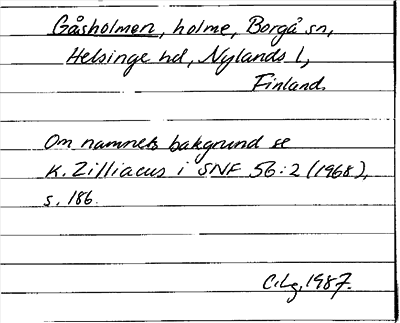 Gåsholmen, holme, Borgå sn,
Helsinge hd, Nylands l,
Finland.
Om namnets bakgrund se
K. Zilliacus i SNF 56:2 (1968),
s. 186.
C.Lg. 1987.